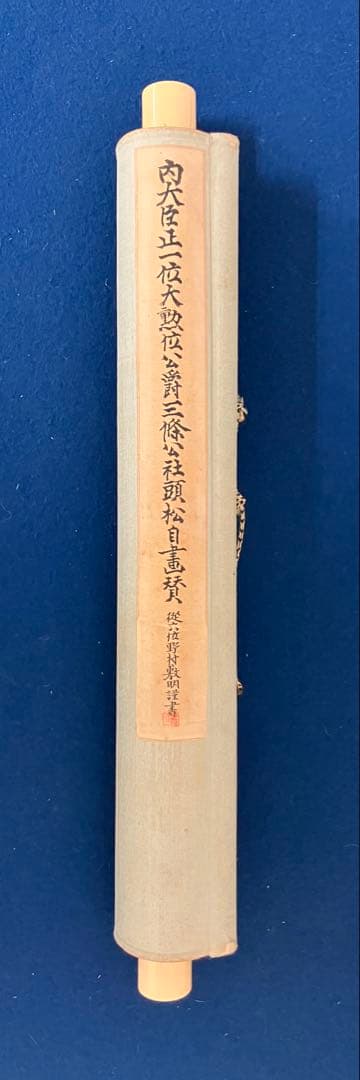 内大臣正一位大勲位公爵三條公社頭松自畫賛
從六位野村敷明謹書